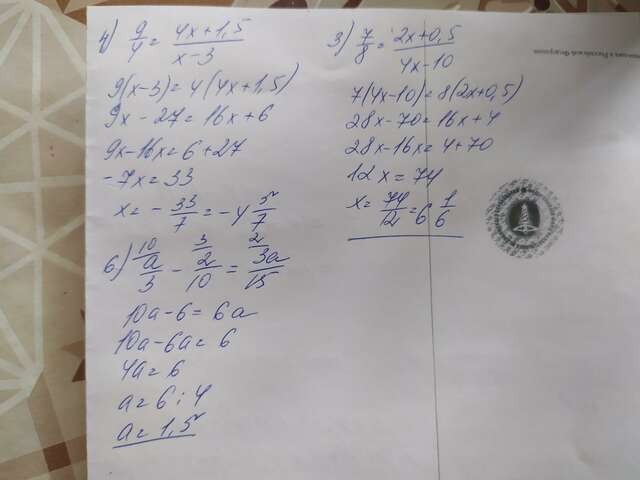 4) 9/4 = (4x+1,5)/(x-3)
9(x-3)=4(4x+1,5)
9x-27=16x+6
9x-16x=6+27
-7x=33
x=-33/7=-4 5/7
3) 7/8 = (2x+0,5)/(4x-10)
7(4x-10)=8(2x+0,5)
28x-70=16x+4
28x-16x=4+70
12x=74
x=74/12=6 1/6
6) 10/ a/3 - 3/ 2/10 = 2/ 3a/15
10a-6=6a
10a-6a=6
4a=6
a=6:4
a=1,5